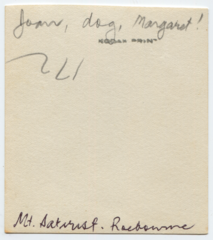 Joan, dog, Margaret!
KODAK PRINT
271
Mt. Satirist. Roebourne